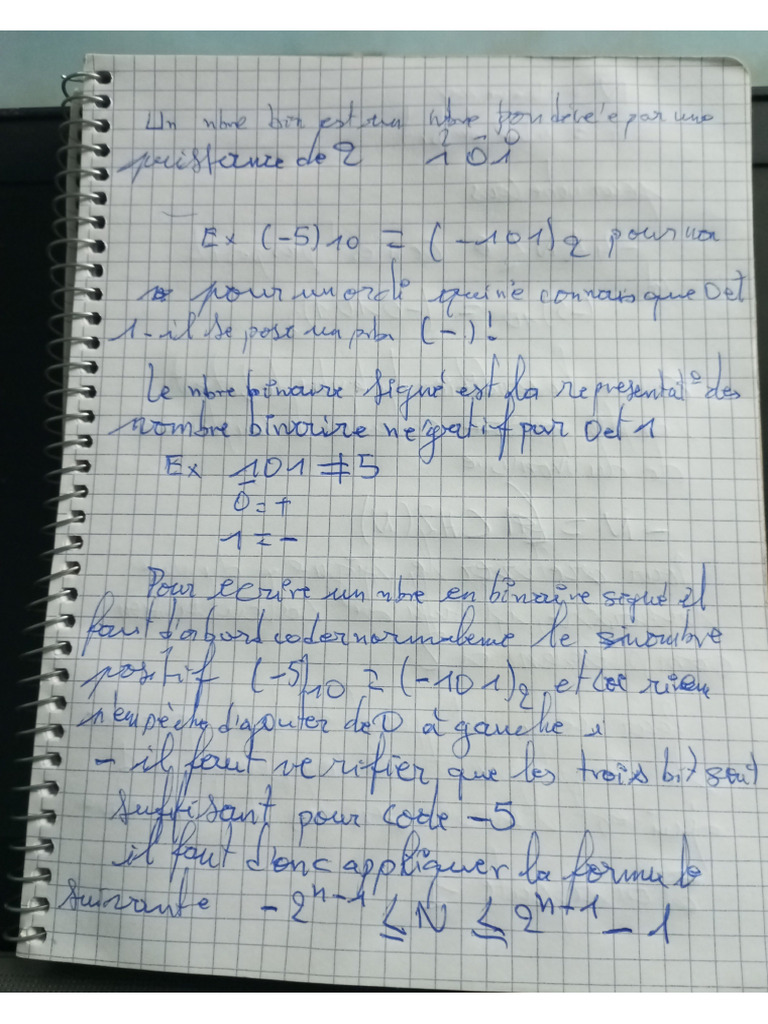 Un nbre bin est un nbre pondéré e par une
2 - 0
puisfance de 2 1 0 1
Ex (-5)10 = (-101)2 pour non
pour un ordi qui ne connais que 0 et
1 - il se pose un pbe (-)!
Le nbre binaire signé est la représentat° des
nombre binaire négatif par 0 et 1
Ex 101 ≠ 5
0 = +
1 = -
Pour ecrire un nbre en binaire signé il
faut d'abord coder normalement le nombre
positif (-5)10 = (-101)2 et rien
n'empêche d'ajouter de 0 à gauche
- il faut verifier que les trois bit sont
suffisant pour code -5
il faut donc appliquer la formule
suivante -2^n-1 ≤ N ≤ 2^n-1 - 1